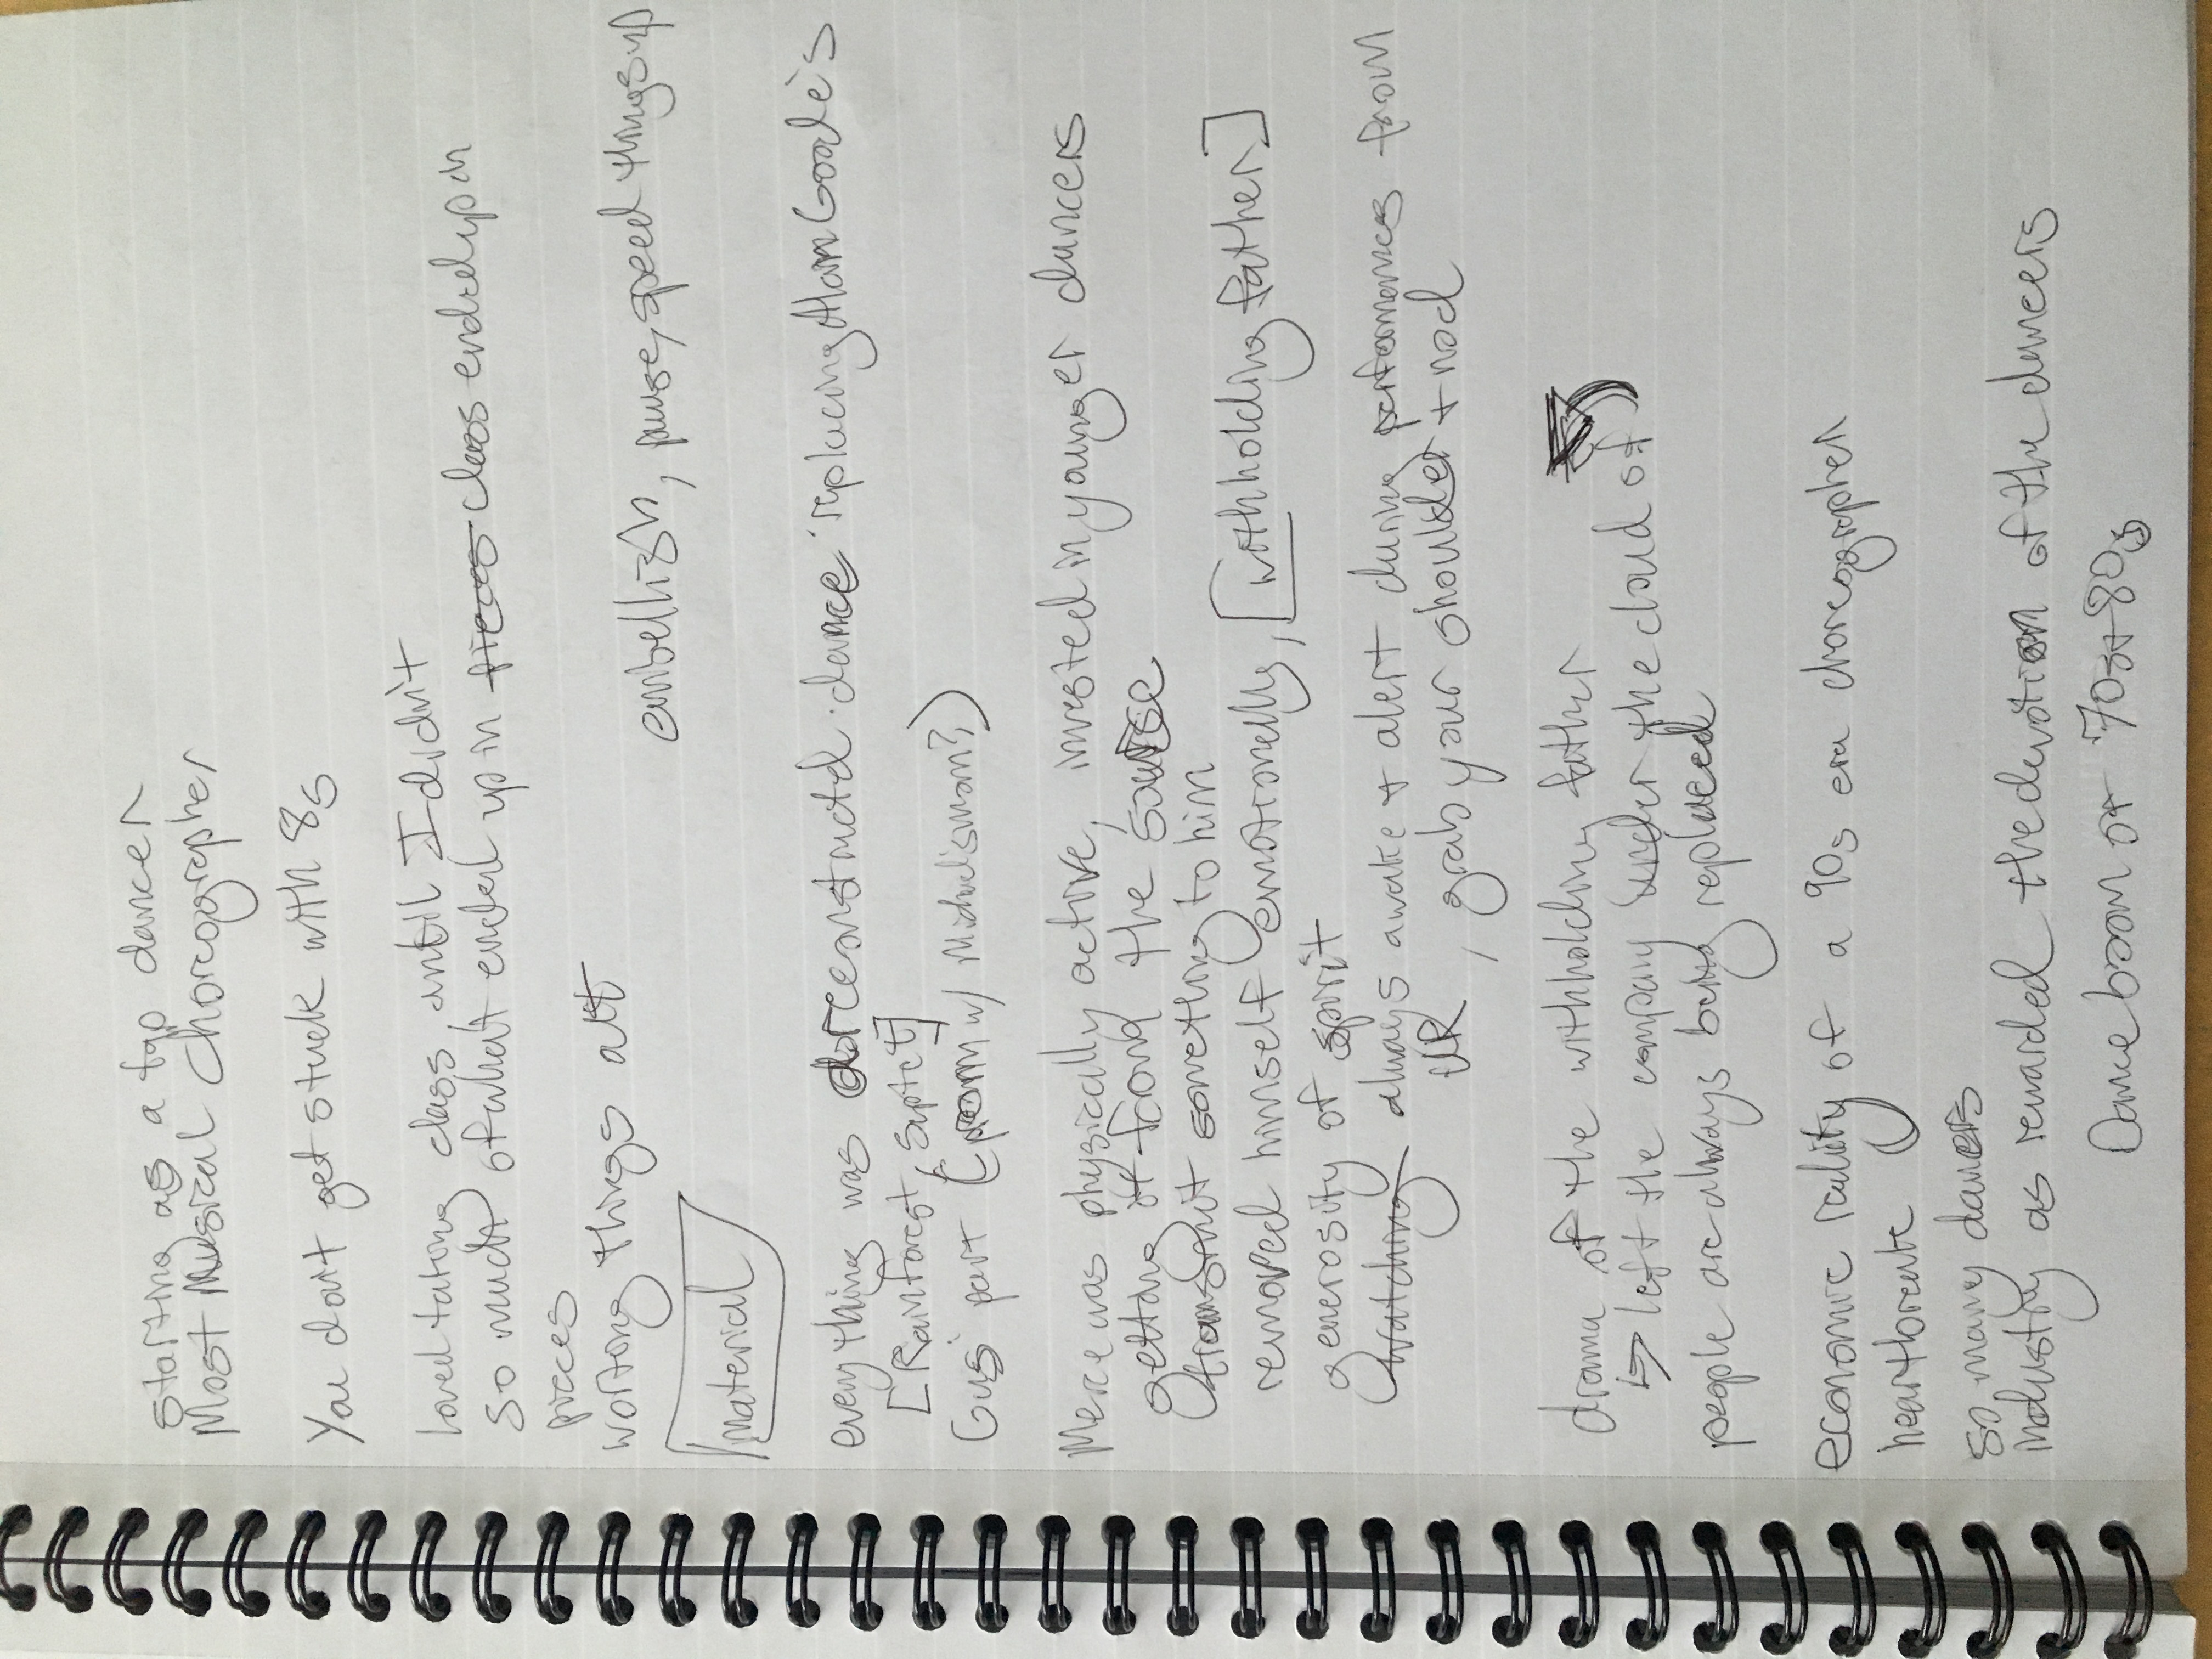 Starting as a tap dancer
Most Musical Choreographer
You don't get stuck with 8s
loved taking class, until I didn't
so much of what ended up in class ended up in
pieces
working things out
embellish, pause, speed things up
material
everything was deconstructed dance replacing Alan Goode's
[Rainforest Suptet]
Gus' part (poem w/ Michael's mom?)
Merce was physically active, invested in younger dancers
getting it from the source
transmit something to him
removed himself emotionally, [withholding father]
generosity of spirit
Watching always awake + alert during performances from
UR, grab your shoulder + nod
drama of the withholding father
↳ left the company under the cloud of
people are always being replaced
economic reality of a 90s era choreographer
heartbreak
so many dancers
industry as rewarded the devotion of the dancers
Dance boom of 70s + 80s